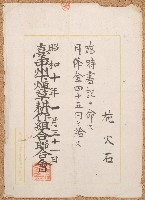 施火石
臨時書記ヲ命ス
月俸金四十五円ヲ給ス
昭和十年一月三十一日
臺中州煙草耕作組合聯合會